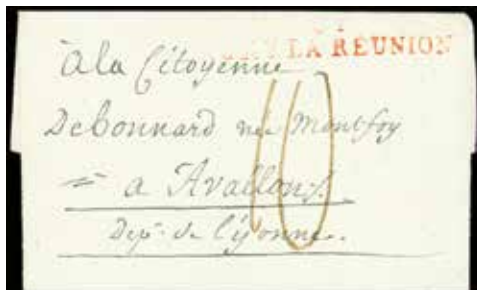 LA REUNION
à la Citoyenne
Debonnard née Montfoy
= a Avallon
Dept. de l'yonne.
10